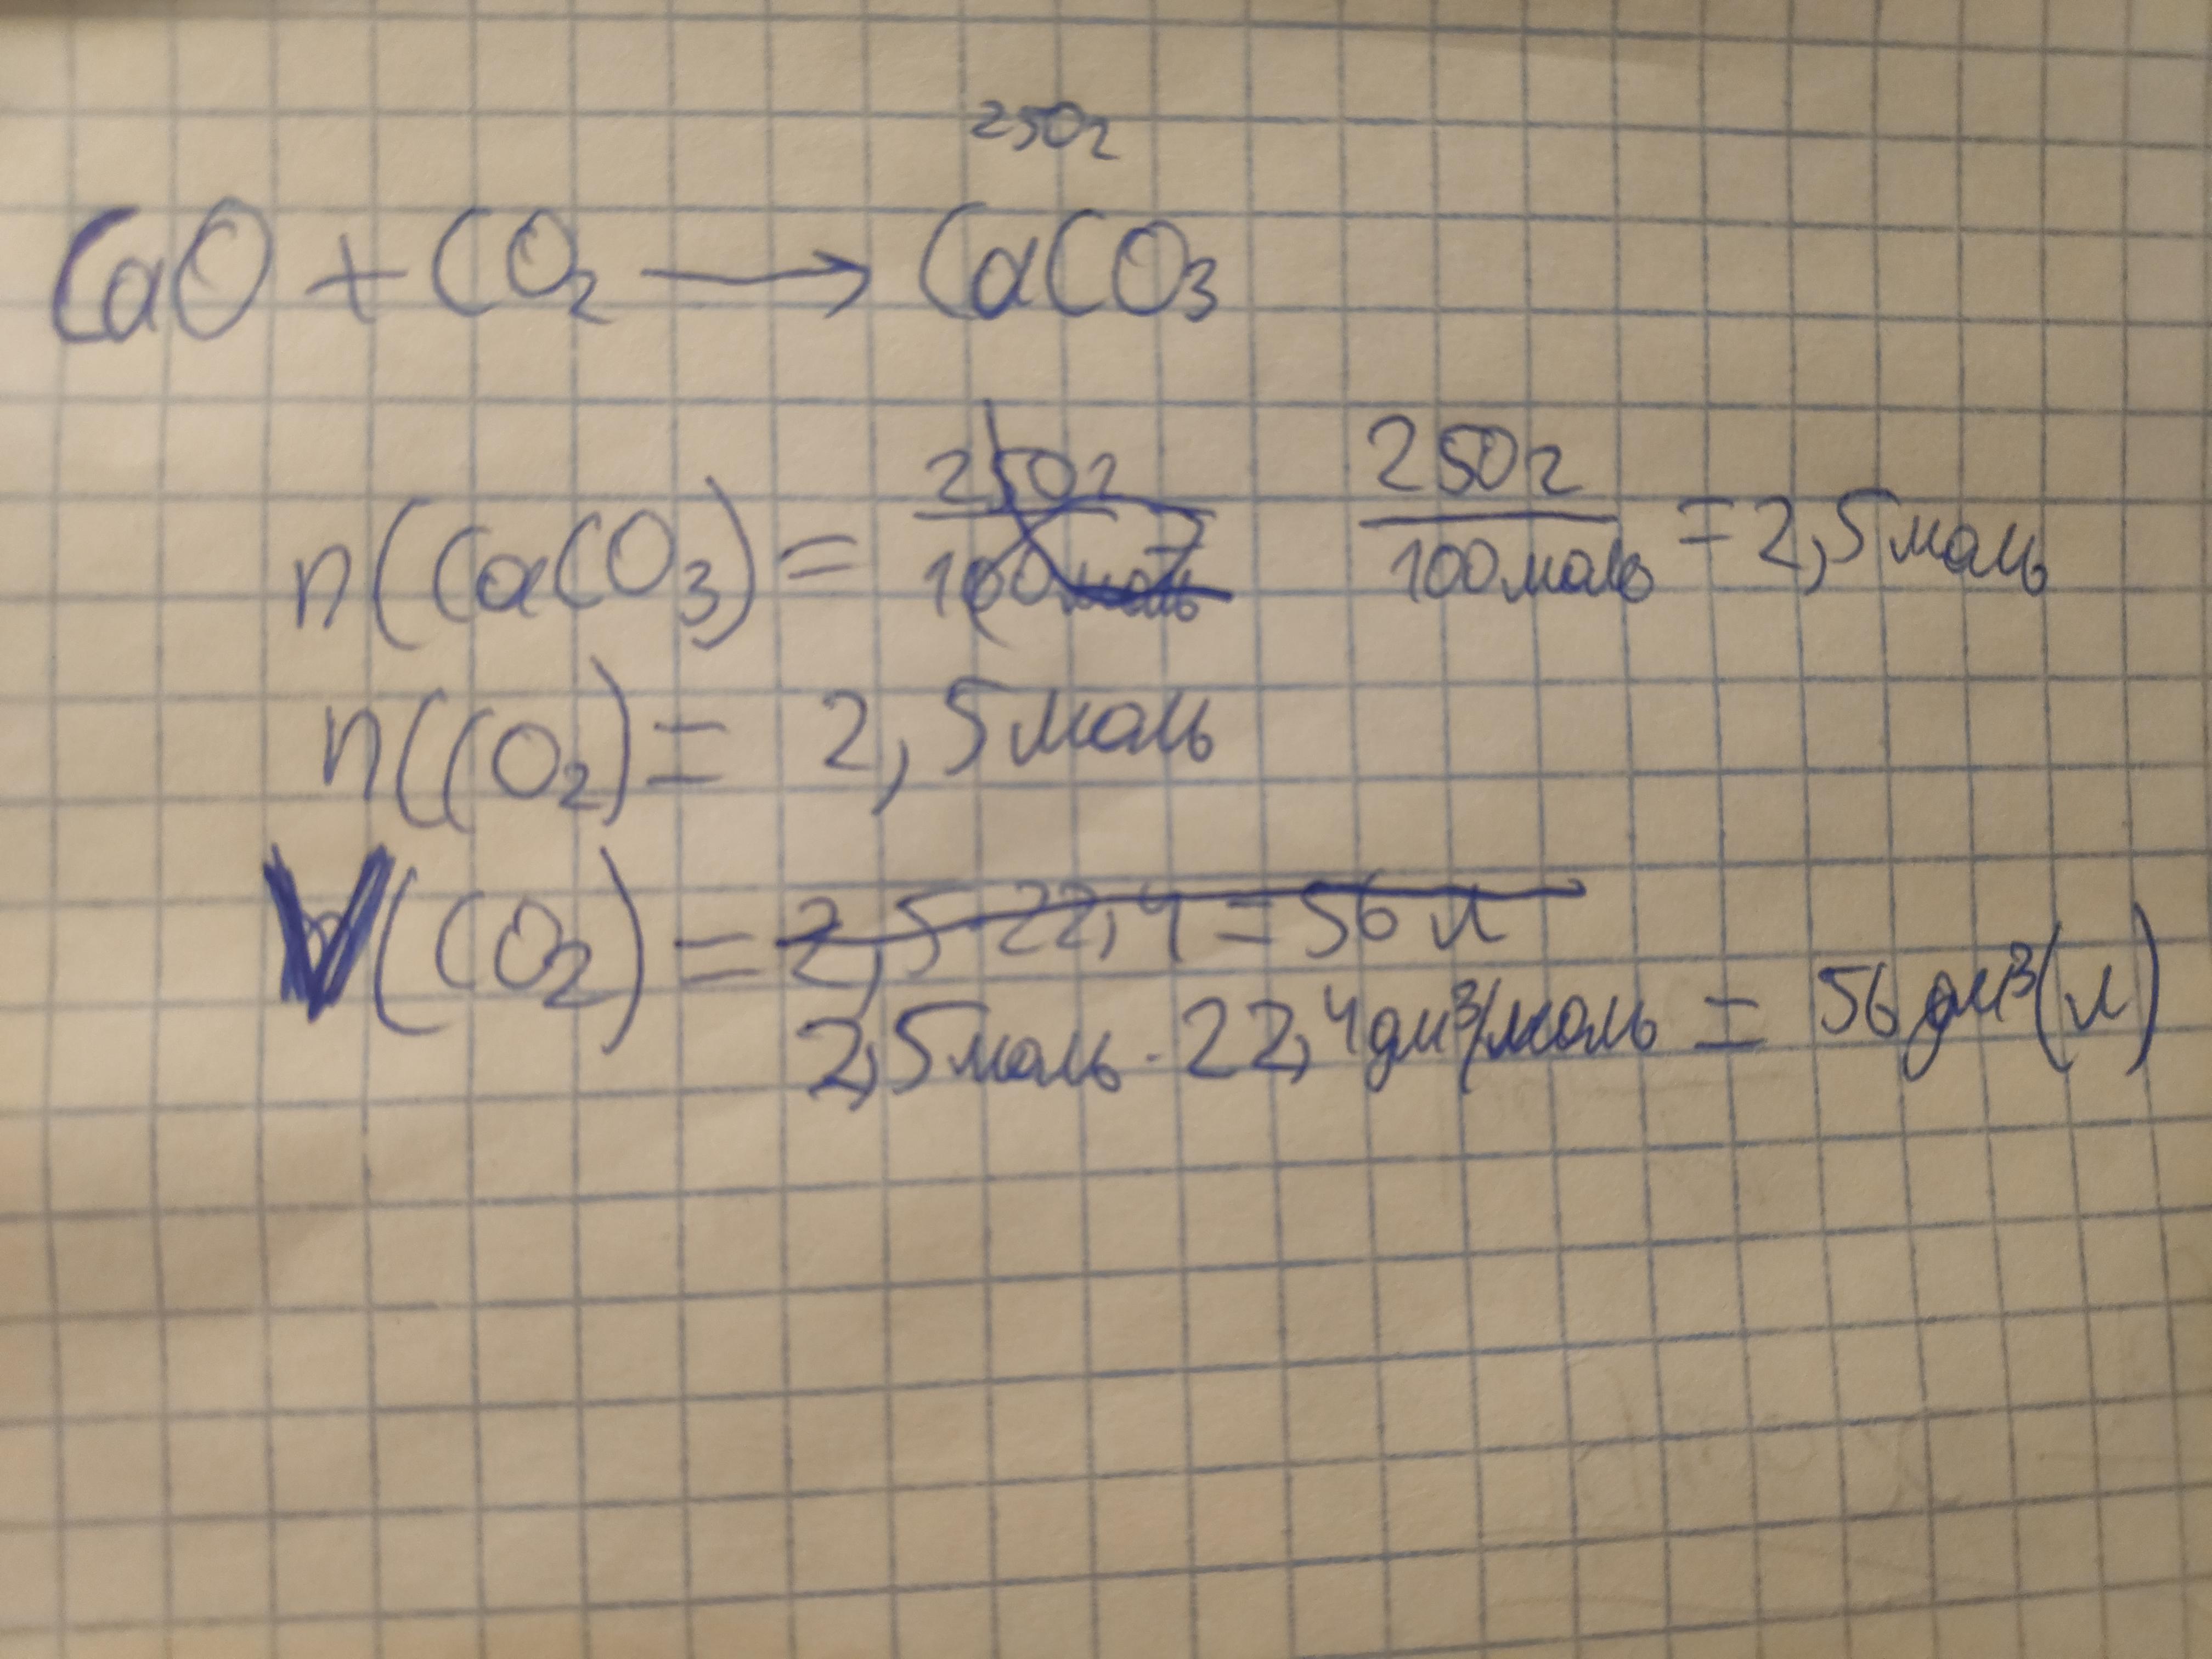 250г
CaO + CO₂ → CaCO₃
n(CaCO₃) = 250г / 100моль 250г / 100моль = 2,5моль
n(CO₂) = 2,5моль
V(CO₂) = 2,5 · 22,4 = 56 л
2,5моль · 22,4дм³/моль = 56 дм³(л)